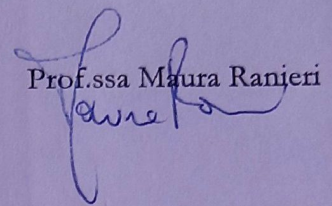 Prof.ssa Maura Ranieri